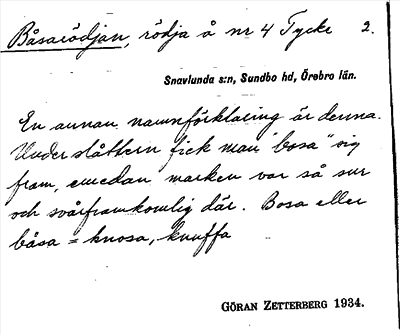 Båsarödjan, rödja å nr 4 Tycke 2.
Snavlunda s:n, Sundbo hd, Örebro län.
En annan namnförklaring är denna.
Under slåttern fick man "bosa" sig
fram, emedan marken var så sur
och svårframkomlig där. Bosa eller
båsa = knosa, knuffa
GÖRAN ZETTERBERG 1934.